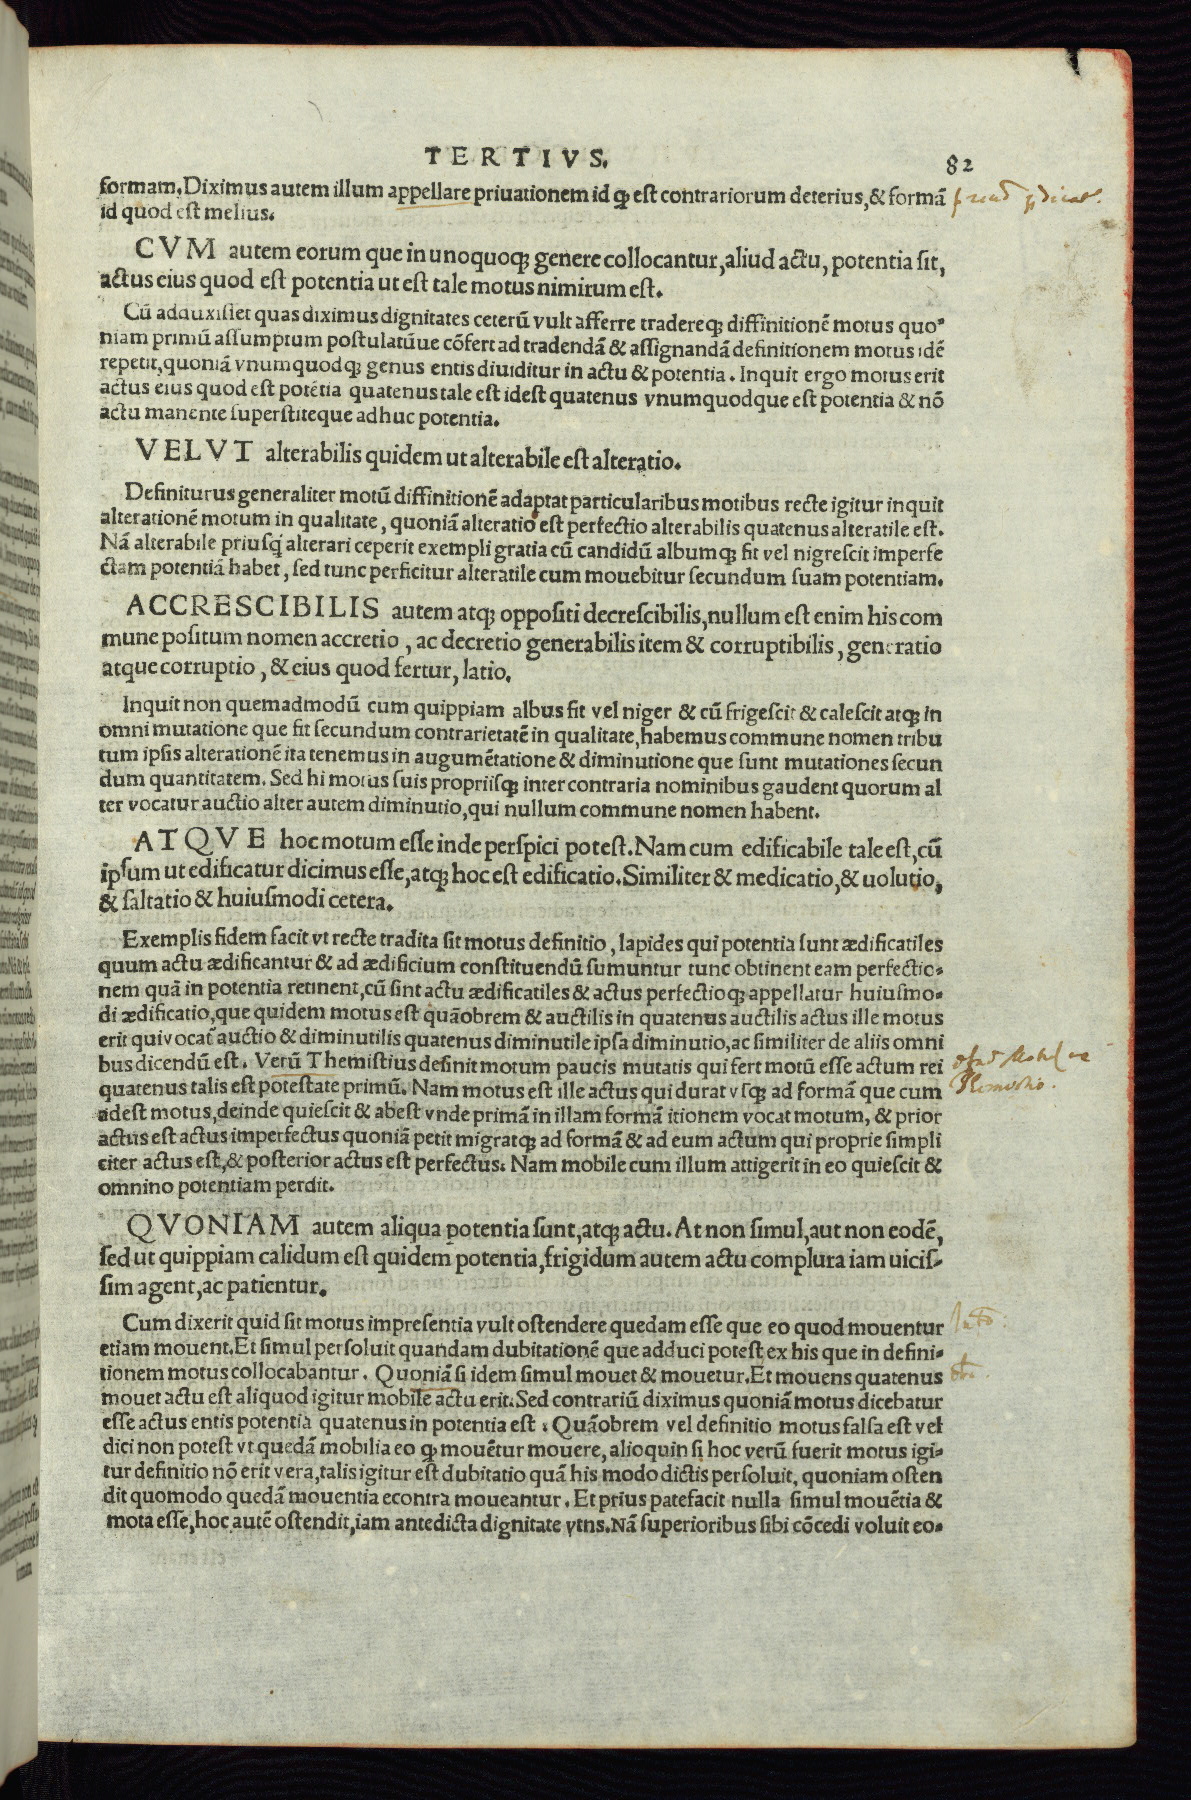 TERTIVS. 82
formam. Diximus autem illum appellare priuationem id ꝙ est contrariorum deterius, & formā
id quod est melius.
CVM autem eorum que in unoquoqꝫ genere collocantur, aliud actu, potentia sit,
actus eius quod est potentia ut est tale motus nimirum est.
Cū adauxisset quas diximus dignitates ceterū vult afferre tradereqꝫ diffinitionē motus quo-
niam primū assumptum postulatūue cōfert ad tradendā & assignandā definitionem motus idē
repetit, quoniā vnumquodqꝫ genus entis diuiditur in actu & potentia. Inquit ergo motus erit
actus eius quod est potētia quatenus tale est idest quatenus vnumquodque est potentia & nō
actu manente superstiteque adhuc potentia.
VELVT alterabilis quidem ut alterabile est alteratio.
Definiturus generaliter motū diffinitionē adaptat particularibus motibus recte igitur inquit
alterationē motum in qualitate, quoniā alteratio est perfectio alterabilis quatenus alteratile est.
Nā alterabile priusqꝫ alterari ceperit exempli gratia cū candidū albumqꝫ fit vel nigrescit imperfe
ctam potentiā habet, sed tunc perficitur alteratile cum mouebitur secundum suam potentiam.
ACCRESCIBILIS autem atqꝫ oppositi decrescibilis, nullum est enim his com
mune positum nomen accretio, ac decretio generabilis item & corruptibilis, generatio
atque corruptio, & eius quod fertur, latio.
Inquit non quemadmodū cum quippiam albus fit vel niger & cū frigescit & calescit atqꝫ in
omni mutatione que fit secundum contrarietatē in qualitate, habemus commune nomen tribu
tum ipsis alterationē ita tenemus in augumētatione & diminutione que sunt mutationes secun
dum quantitatem. Sed hi motus suis propriisqꝫ inter contraria nominibus gaudent quorum al
ter vocatur auctio alter autem diminutio, qui nullum commune nomen habent.
ATQVE hoc motum esse inde perspici potest. Nam cum edificabile tale est, cū
ipsum ut edificatur dicimus esse, atqꝫ hoc est edificatio. Similiter & medicatio, & uolutio,
& saltatio & huiusmodi cetera.
Exemplis fidem facit vt recte tradita sit motus definitio, lapides qui potentia sunt ædificatiles
quum actu ædificantur & ad ædificium constituendū sumuntur tunc obtinent eam perfectio-
nem quā in potentia retinent, cū sint actu ædificatiles & actus perfectioqꝫ appellatur huiusmo-
di ædificatio, que quidem motus est quāobrem & auctilis in quatenus auctilis actus ille motus
erit qui vocat̄ auctio & diminutilis quatenus diminutile ipsa diminutio, ac similiter de aliis omni
bus dicendū est. Verū Themistius definit motum paucis mutatis qui fert motū esse actum rei
quatenus talis est potestate primū. Nam motus est ille actus qui durat vsqꝫ ad formā que cum
adest motus, deinde quiescit & abest vnde primā in illam formā itionem vocat motum, & prior
actus est actus imperfectus quoniā petit migratqꝫ ad formā & ad eum actum qui proprie simpli
citer actus est, & posterior actus est perfectus. Nam mobile cum illum attigerit in eo quiescit &
omnino potentiam perdit.
QVONIAM autem aliqua potentia sunt, atqꝫ actu. At non simul, aut non eodē,
sed ut quippiam calidum est quidem potentia, frigidum autem actu complura iam uicis-
sim agent, ac patientur.
Cum dixerit quid sit motus impresentia vult ostendere quedam esse que eo quod mouentur
etiam mouent. Et simul persoluit quandam dubitationē que adduci potest ex his que in defini-
tionem motus collocabantur. Quoniā si idem simul mouet & mouetur. Et mouens quatenus
mouet actu est aliquod igitur mobile actu erit. Sed contrariū diximus quoniā motus dicebatur
esse actus entis potentia quatenus in potentia est. Quāobrem vel definitio motus falsa est vel
dici non potest vt quedā mobilia eo ꝙ mouētur mouere, alioquin si hoc verū fuerit motus igi-
tur definitio nō erit vera, talis igitur est dubitatio quā his modo dictis persoluit, quoniam osten
dit quomodo quedā mouentia econtra moueantur. Et prius patefacit nulla simul mouētia &
mota esse, hoc autē ostendit, iam antedicta dignitate vtns. Nā superioribus sibi cōcedi voluit eo-